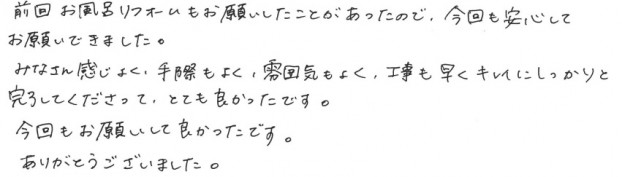 前回お風呂リフォームもお願いしたことがあったので、今回も安心して
お願いできました。
みなさん感じよく、手際もよく、雰囲気もよく、工事も早くキレイにしっかりと
完了してくださって、とても良かったです。
今回もお願いして良かったです。
ありがとうございました。